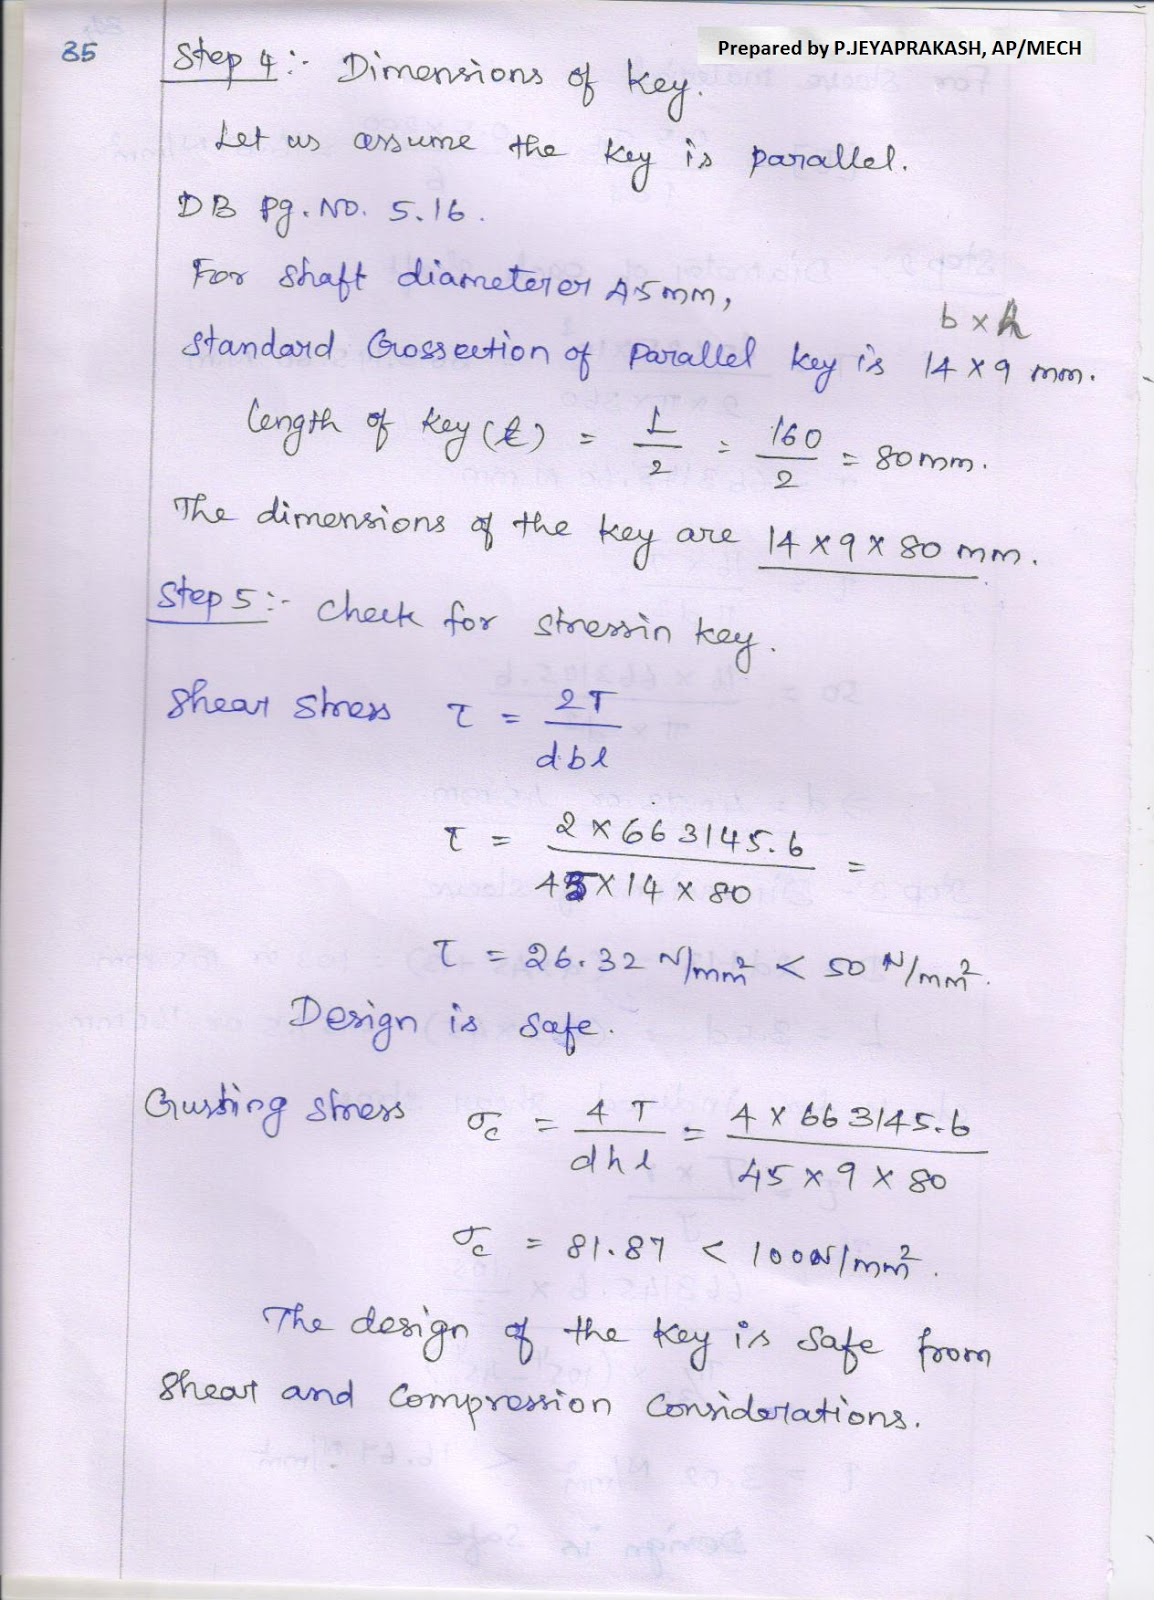 35
Prepared by P.JEYAPRAKASH, AP/MECH
Step 4:- Dimensions of key.
Let us assume the key is parallel.
DB Pg. NO. 5.16.
For shaft diameter or 45mm,
b x h
Standard Crossection of Parallel key is 14 x 9 mm.
Length of key (l) = L/2 = 160/2 = 80mm.
The dimensions of the key are 14 x 9 x 80 mm.
Step 5:- Check for stress in key.
Shear stress τ = 2T/dbl
τ = 2 x 663145.6 / 45 x 14 x 80 =
τ = 26.32 N/mm² < 50 N/mm².
Design is safe.
Crushing stress σc = 4T/dhl = 4 x 663145.6 / 45 x 9 x 80
σc = 81.87 < 100N/mm².
The design of the key is safe from
shear and compression considerations.